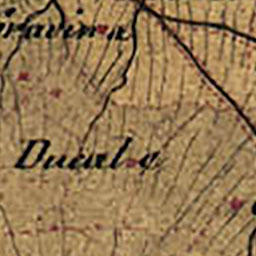 Gravina
Ducale